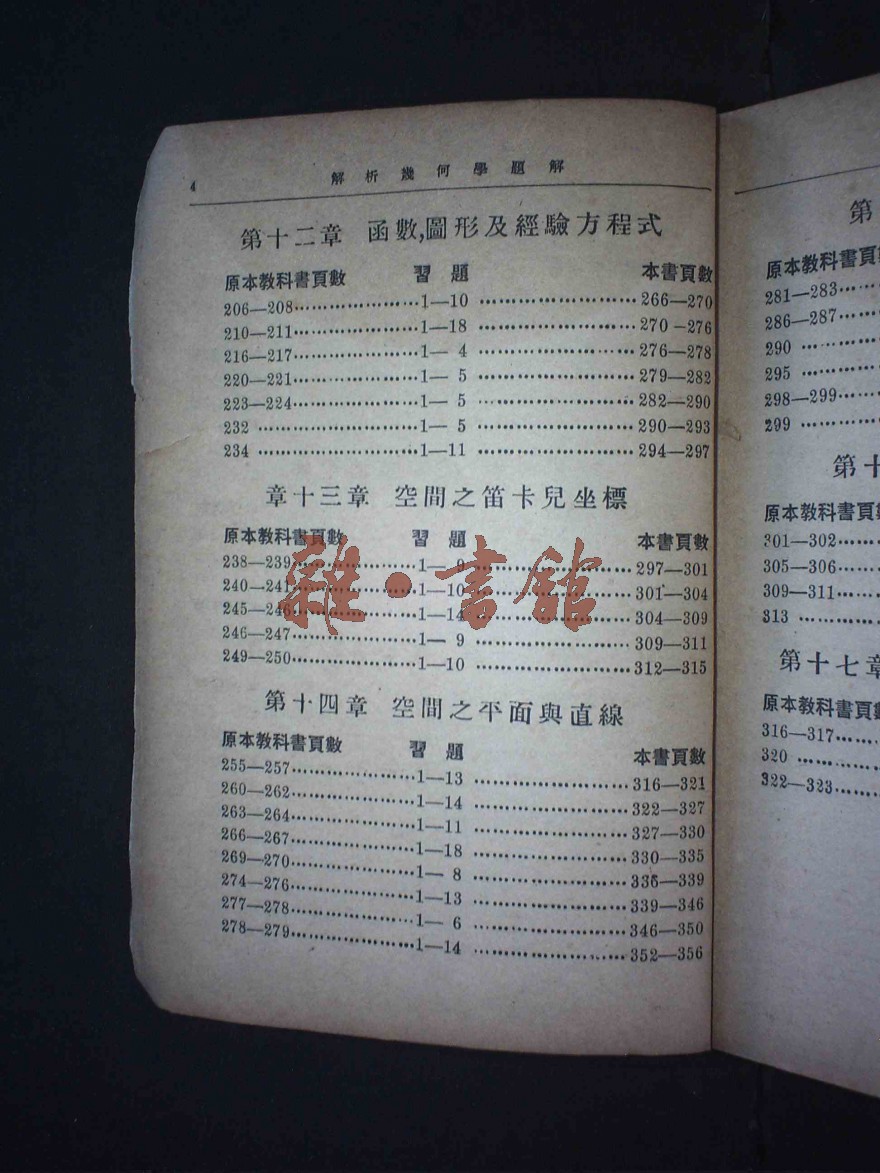 4 解析幾何學題解
第十二章 函數,圖形及經驗方程式
原本教科書頁數 習題 本書頁數
206—208……………………1—10……………………266—270
210—211……………………1—18……………………270—276
216—217……………………1— 4……………………276—278
220—221……………………1— 5……………………279—282
223—224……………………1— 5……………………282—290
232……………………1— 5……………………290—293
234……………………1—11……………………294—297
章十三章 空間之笛卡兒坐標
原本教科書頁數 習題 本書頁數
238—239……………………1— 9……………………297—301
240—241……………………1—10……………………301—304
245—246……………………1—14……………………304—309
246—247……………………1— 9……………………309—311
249—250……………………1—10……………………312—315
第十四章 空間之平面與直線
原本教科書頁數 習題 本書頁數
255—257……………………1—13……………………316—321
260—262……………………1—14……………………322—327
263—264……………………1—11……………………327—330
266—267……………………1—18……………………330—335
269—270……………………1— 8……………………336—339
274—276……………………1—13……………………339—346
277—278……………………1— 6……………………346—350
278—279……………………1—14……………………352—356
雜·書館
第
原本教科書頁
281—283……
286—287……
290……
295……
298—299……
299……
第十
原本教科書頁
301—302……
305—306……
309—311……
313……
第十七章
原本教科書頁
316—317……
320……
322—323……